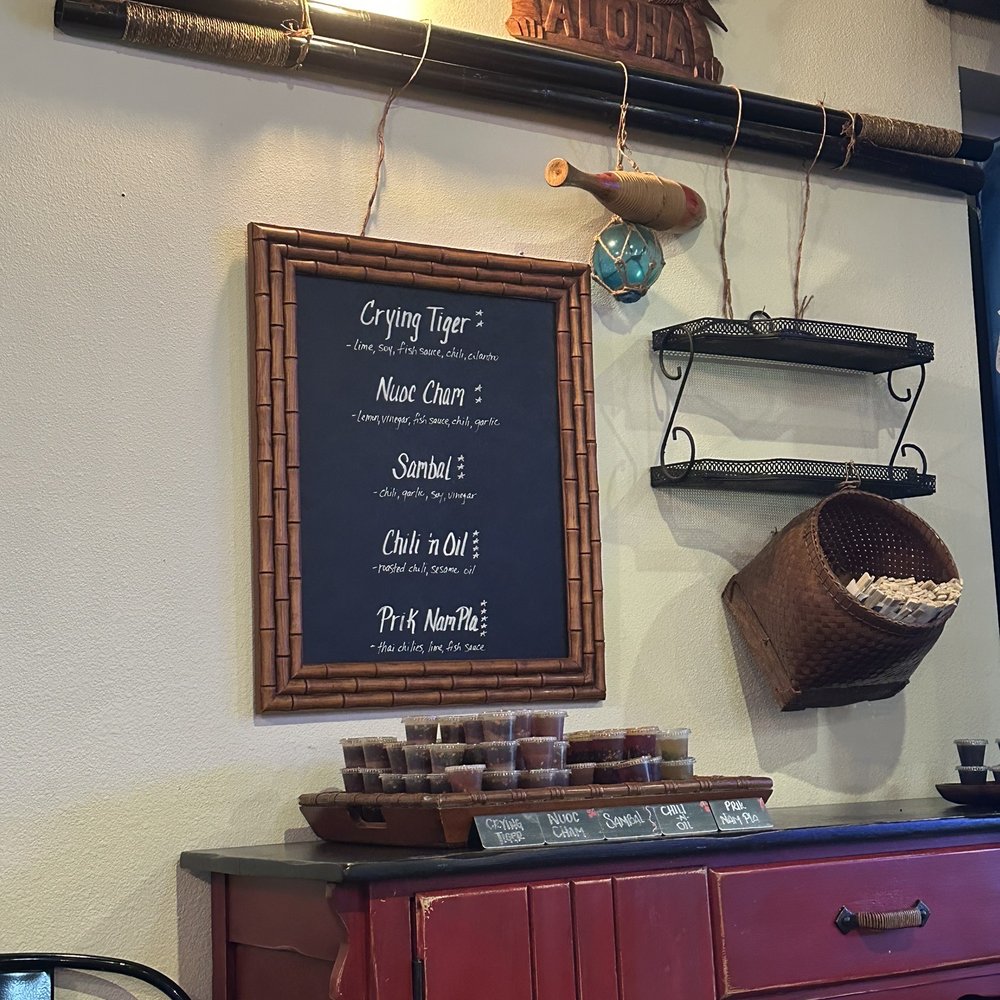 ALOHA
Crying Tiger **
- lime, soy, fish sauce, chili, cilantro
Nuoc Cham **
- lemon, vinegar, fish sauce, chili, garlic
Sambal ***
- chili, garlic, soy, vinegar
Chili 'n Oil ****
- roasted chili, sesame oil
Prik Nam Pla *****
- thai chilies, lime, fish sauce
CRYING
TIGER
NUOC
CHAM
SAMBAL
CHILI
-N-
OIL
PRIK
NAM PLA